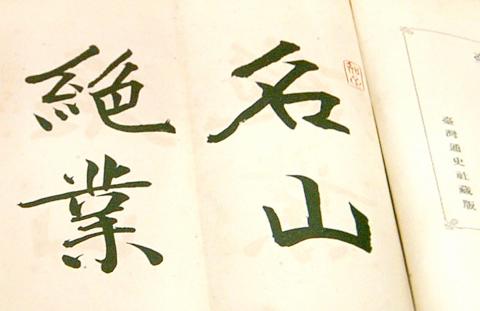 名山
絶業
臺灣通史社藏版